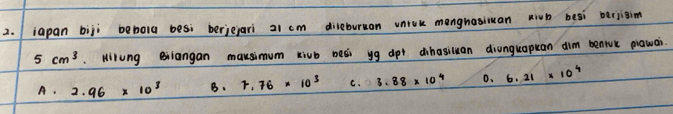 2. iapan biji bebola besi berjejari 21 cm dileburkan untuk menghasilkan kiub besi berjisim
5 cm³. Hitung Bilangan maksimum kiub besi yg dpt dihasilkan diungkapkan dlm bentuk piawai.
A. 2.96 x 10³ B. 7.76 x 10³ C. 3.88 x 10⁴ D. 6.21 x 10⁴